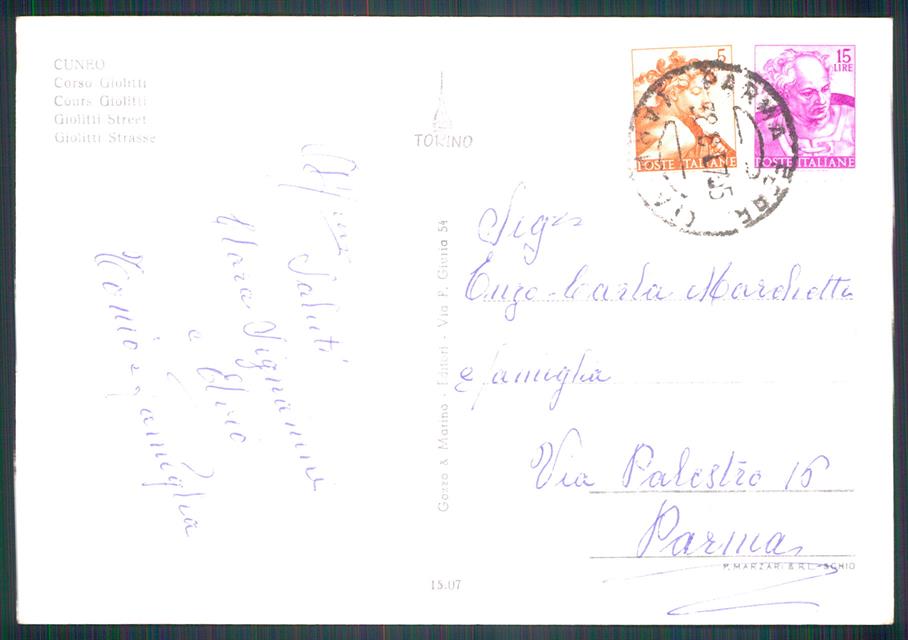 CUNEO
Corso Giolitti
Cours Giolitti
Giolitti Street
Giolitti Strasse
TORINO
5
POSTE ITALIANE
15
LIRE
POSTE ITALIANE
PARMA
Saluti
e
Elvio
e famiglia
Garzo & Marino - Editori - Via P. Giuria 54
Sigri
Enzo-Carla Marchetti
e famiglia
Via Palestro 15
Parma
P. MARZARI S.R.L.-SCHIO
15.07